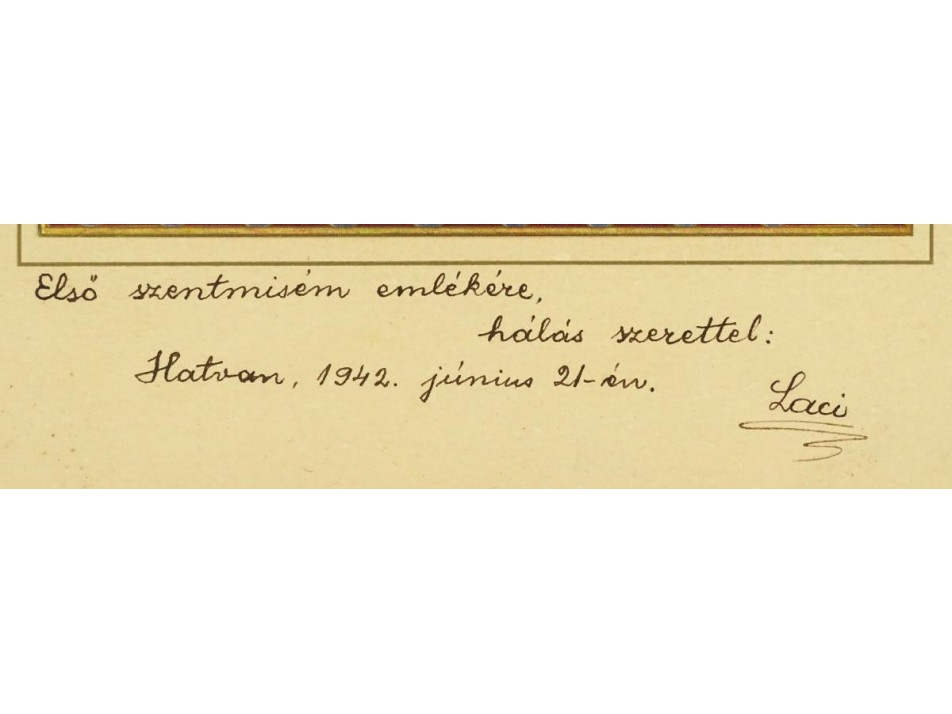 Első szentmisém emlékére,
hálás szerettel:
Hatvan, 1942. június 21-én.
Laci